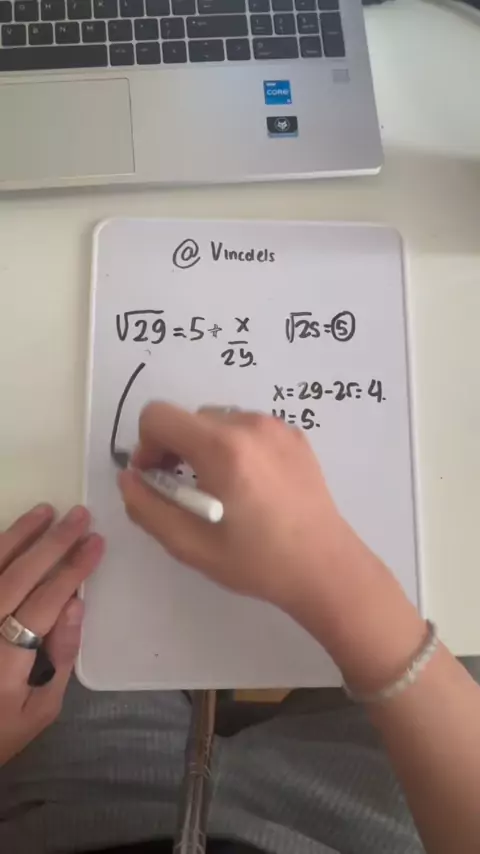 @ Vincdels
√29 = 5 + x/2y. √25 = 5
x = 29 - 25 = 4.
y = 5.
CORE